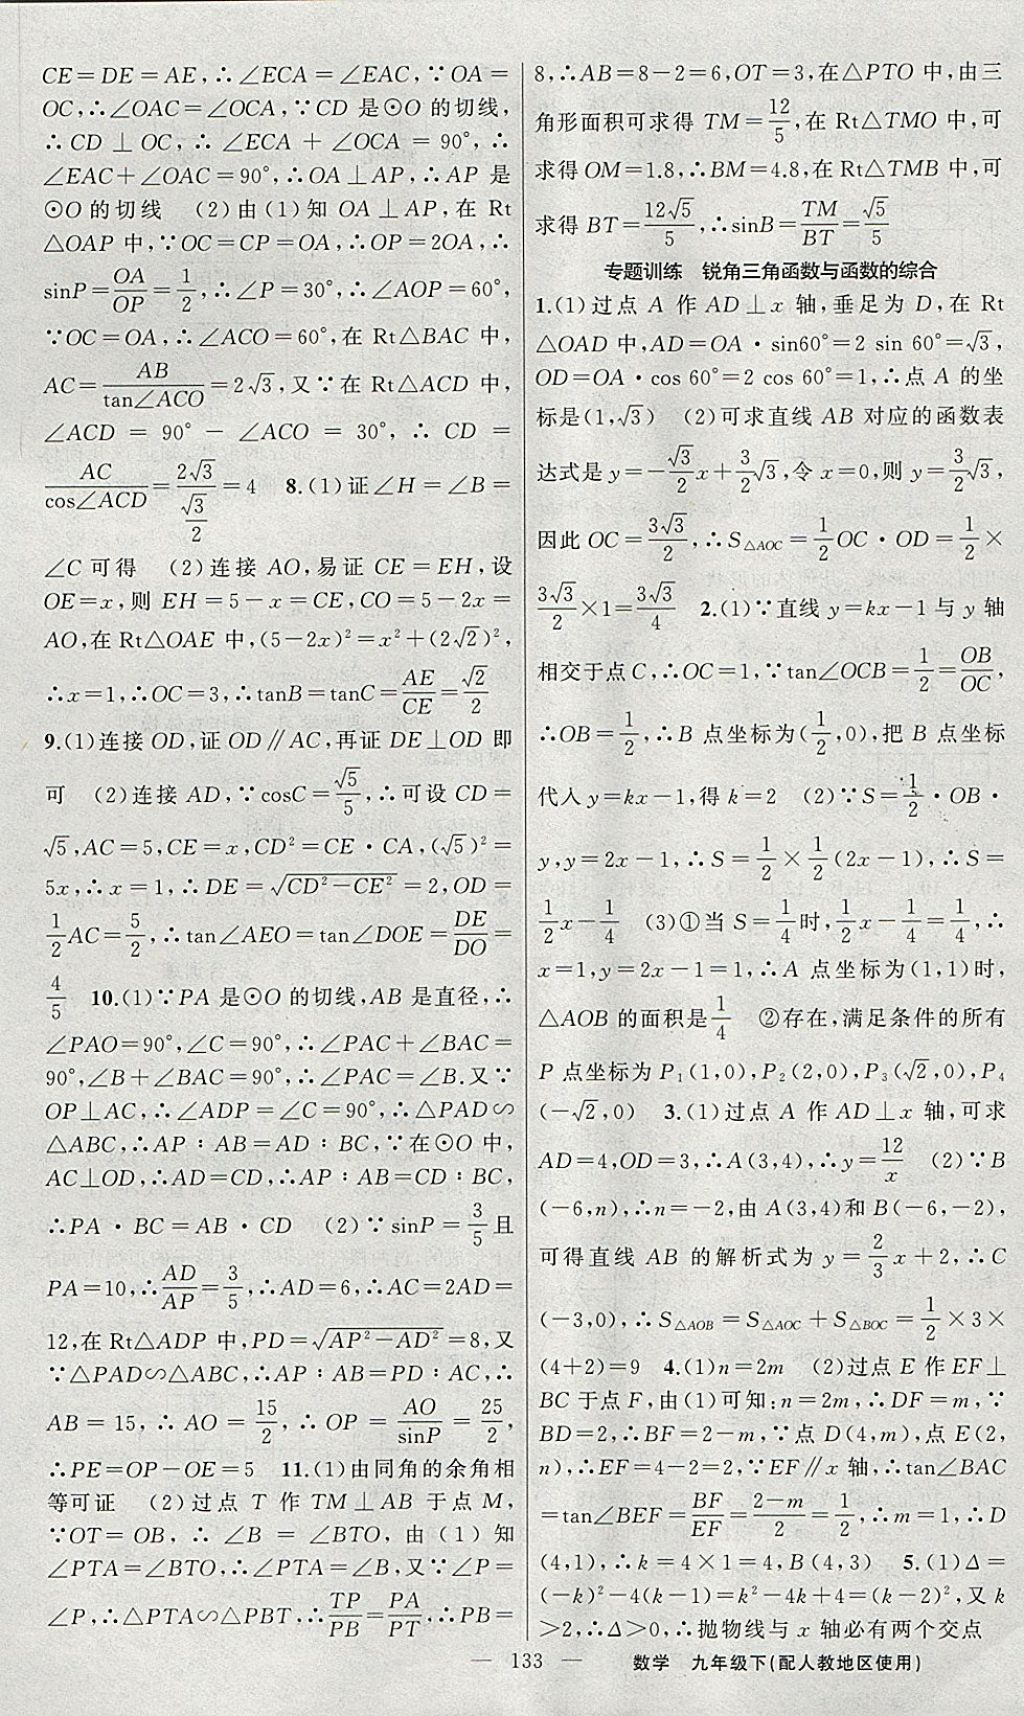 CE=DE=AE,∴∠ECA=∠EAC,∵OA=
OC,∴∠OAC=∠OCA,∵CD 是⊙O 的切线,
∴CD⊥OC,∴∠ECA+∠OCA=90°,∴
∠EAC+∠OAC=90°,∴OA⊥AP,∴AP 是
⊙O 的切线 (2)由(1)知 OA⊥AP,在 Rt
△OAP 中,∵OC=CP=OA,∴OP=2OA,∴
sinP=OA/OP=1/2,∴∠P=30°,∴∠AOP=60°,
∵OC=OA,∴∠ACO=60°,在 Rt△BAC 中,
AC=AB/tan∠ACO=2√3,又∵在 Rt△ACD 中,
∠ACD=90°-∠ACO=30°,∴CD=
AC/cos∠ACD=2√3/(√3/2)=4 8.(1)证∠H=∠B=
∠C 可得 (2)连接 AO,易证 CE=EH,设
OE=x,则 EH=5-x=CE,CO=5-2x=
AO,在 Rt△OAE 中,(5-2x)²=x²+(2√2)²,
∴x=1,∴OC=3,∴tanB=tanC=AE/CE=√2/2
9.(1)连接 OD,证 OD∥AC,再证 DE⊥OD 即
可 (2)连接 AD,∵cosC=√5/5,∴可设 CD=
√5,AC=5,CE=x,CD²=CE·CA,(√5)²=
5x,∴x=1,∴DE=√(CD²-CE²)=2,OD=
1/2AC=5/2,∴tan∠AEO=tan∠DOE=DE/DO=
4/5 10.(1)∵PA 是⊙O 的切线,AB 是直径,∴
∠PAO=90°,∠C=90°,∴∠PAC+∠BAC=
90°,∠B+∠BAC=90°,∴∠PAC=∠B.又∵
OP⊥AC,∴∠ADP=∠C=90°,∴△PAD∽
△ABC,∴AP∶AB=AD∶BC,∵在⊙O 中,
AC⊥OD,∴AD=CD,∴AP∶AB=CD∶BC,
∴PA·BC=AB·CD (2)∵sinP=3/5且
PA=10,∴AD/AP=3/5,∴AD=6,∴AC=2AD=
12,在 Rt△ADP 中,PD=√(AP²-AD²)=8,又
∵△PAD∽△ABC,∴AP∶AB=PD∶AC,∴
AB=15,∴AO=15/2,∴OP=AO/sinP=25/2,
∴PE=OP-OE=5 11.(1)由同角的余角相
等可证 (2)过点 T 作 TM⊥AB 于点 M,
∵OT=OB,∴∠B=∠BTO,由(1)知
∠PTA=∠BTO,∴∠PTA=∠B,又∵∠P=
∠P,∴△PTA∽△PBT,∴TP/PB=PA/PT,∴PB=
8,∴AB=8-2=6,OT=3,在△PTO 中,由三
角形面积可求得 TM=12/5,在 Rt△TMO 中,可
求得 OM=1.8,∴BM=4.8,在 Rt△TMB 中,可
求得 BT=12√5/5,∴sinB=TM/BT=√5/5
专题训练 锐角三角函数与函数的综合
1.(1)过点 A 作 AD⊥x 轴,垂足为 D,在 Rt
△OAD 中,AD=OA·sin60°=2 sin 60°=√3,
OD=OA·cos 60°=2 cos 60°=1,∴点 A 的坐
标是(1,√3) (2)可求直线 AB 对应的函数表
达式是 y=-√3/2x+3/2√3,令 x=0,则 y=3/2√3,
因此 OC=3√3/2,∴S△AOC=1/2OC·OD=1/2×
3√3/2×1=3√3/4 2.(1)∵直线 y=kx-1 与 y 轴
相交于点 C,∴OC=1,∵tan∠OCB=1/2=OB/OC,
∴OB=1/2,∴B 点坐标为(1/2,0),把 B 点坐标
代入 y=kx-1,得 k=2 (2)∵S=1/2·OB·
y,y=2x-1,∴S=1/2×1/2(2x-1),∴S=
1/2x-1/4 (3)①当 S=1/4时,1/2x-1/4=1/4,∴
x=1,y=2x-1=1,∴A 点坐标为(1,1)时,
△AOB 的面积是1/4 ②存在,满足条件的所有
P 点坐标为 P₁(1,0),P₂(2,0),P₃(√2,0),P₄
(-√2,0) 3.(1)过点 A 作 AD⊥x 轴,可求
AD=4,OD=3,∴A(3,4),∴y=12/x (2)∵B
(-6,n),∴n=-2,由 A(3,4)和 B(-6,-2),
可得直线 AB 的解析式为 y=2/3x+2,∴C
(-3,0),∴S△AOB=S△AOC+S△BOC=1/2×3×
(4+2)=9 4.(1)n=2m (2)过点 E 作 EF⊥
BC 于点 F,由(1)可知:n=2m,∴DF=m,∵
BD=2,∴BF=2-m,∵点 D(4,m),点 E(2,
n),∴EF=4-2=2,∵EF∥x 轴,∴tan∠BAC
=tan∠BEF=BF/EF=2-m/2=1/2,∴m=1,∴D
(4,1),∴k=4×1=4,B(4,3) 5.(1)Δ=
(-k)²-4(k-1)=k²-4k+4=(k-2)²,又 k
>2,∴Δ>0,∴抛物线与 x 轴必有两个交点
— 133 — 数学 九年级下(配人教地区使用)